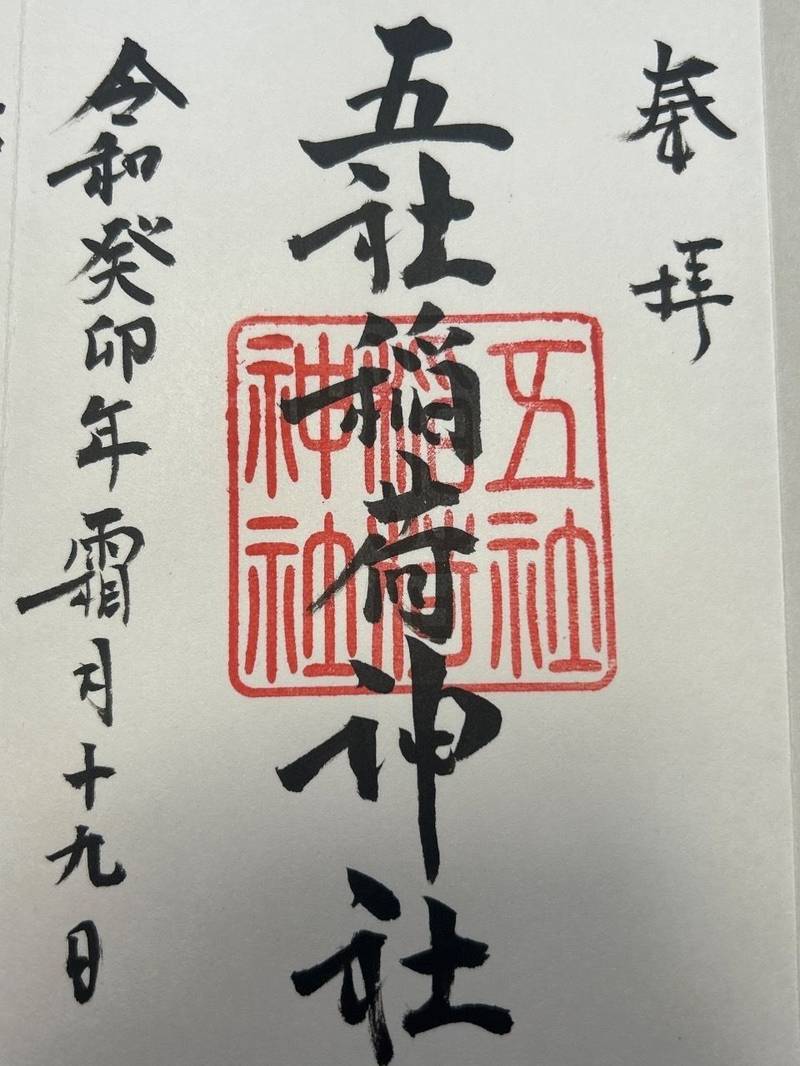 奉拝
五社稲荷神社
五社
稲荷
神社
令和癸卯年霜月十九日